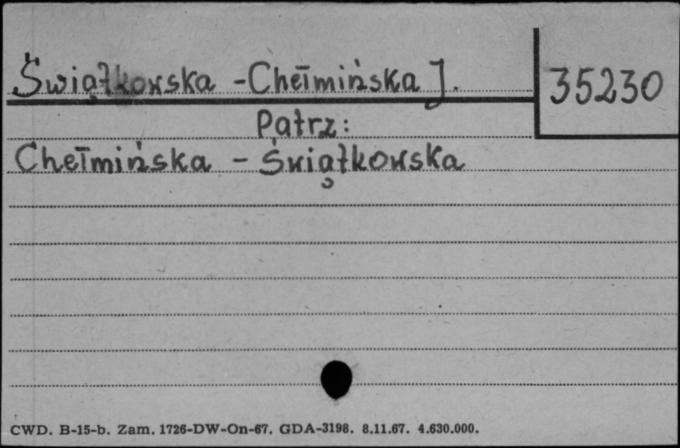 Świątkowska - Chełmińska J.
35230
Patrz:
Chełmińska - Świątkowska
CWD. B-15-b. Zam. 1726-DW-On-67. GDA-3198. 8.11.67. 4.630.000.